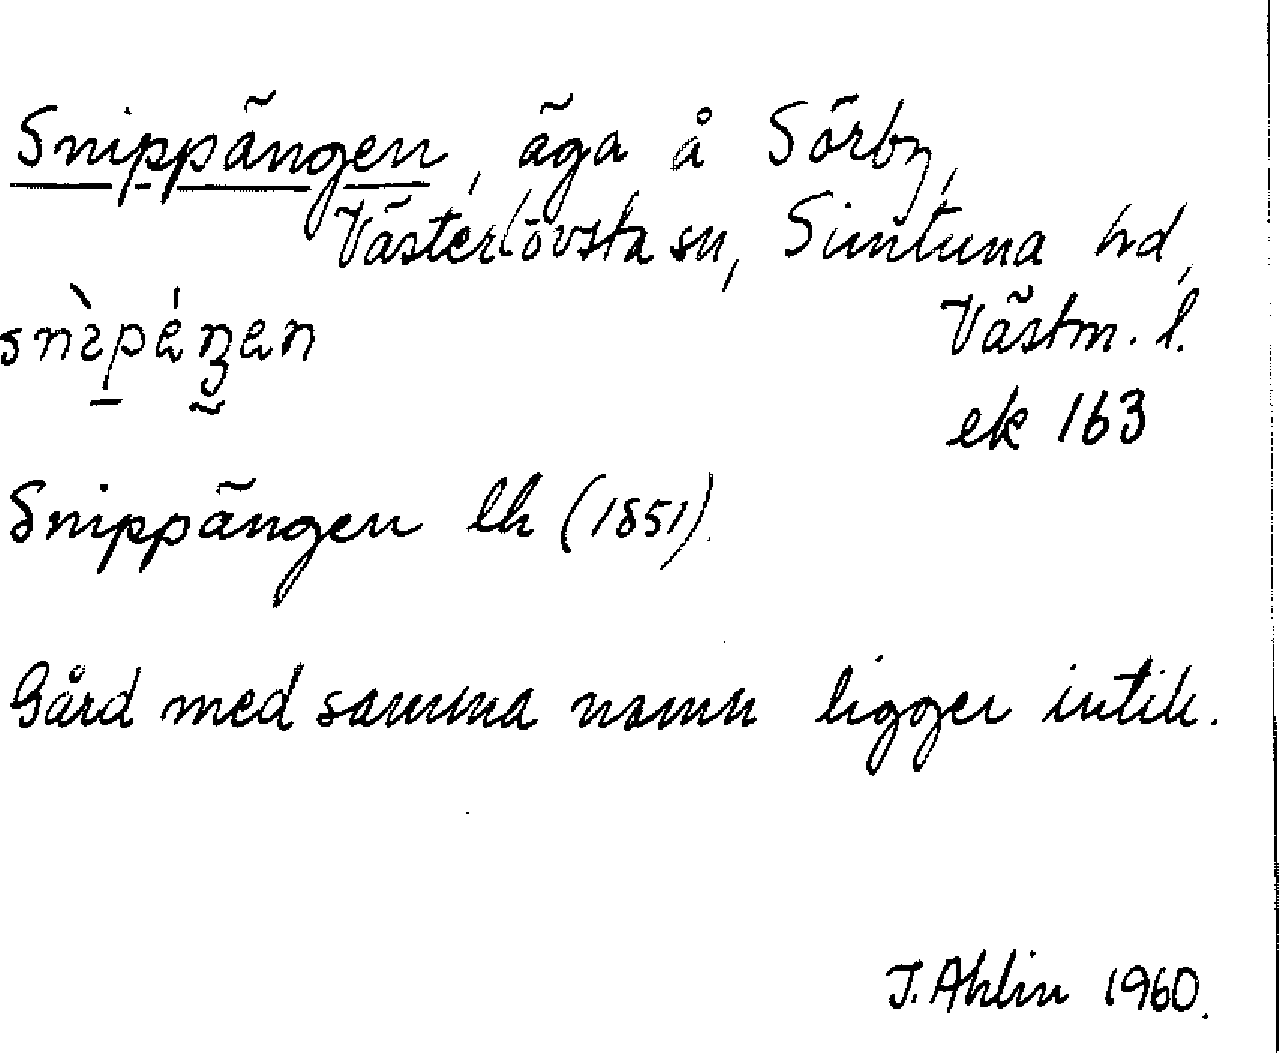 Snippängen, äga å Sörby,
Västerlövsta sn, Simtuna hd,
Västm. l.
ek 163
Snippängen lh (1851).
Gård med samma namn ligger intill.
J. Ahlin 1960.